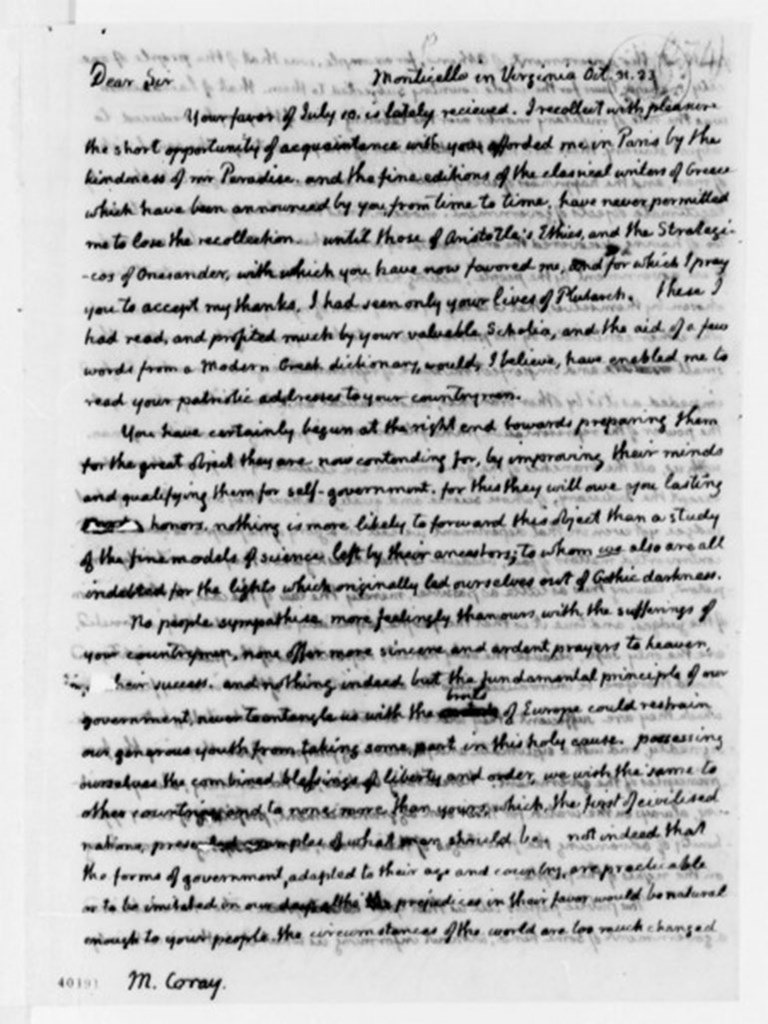 Dear Sir Monticello in Virginia Oct. 31. 23
Your favor of July 10. is lately recieved. I recollect with pleasure
the short opportunity of acquaintance with you afforded me in Paris by the
kindness of mr Paradise. and the fine editions of the classical writers of Greece
which have been announced by you from time to time, have never permitted
me to lose the recollection. until those of Aristotle's Ethics, and the Strategi-
-cos of Onesander, with which you have now favored me, and for which I pray
you to accept my thanks, I had seen only your lives of Plutarch. These I
had read, and profited much by your valuable Scholia, and the aid of a few
words from a Modern Greek dictionary, would, I believe, have enabled me to
read your patriotic addresses to your countrymen.
You have certainly begun at the right end towards preparing them
for the great object they are now contending for, by improving their minds
and qualifying them for self-government. for this they will owe you lasting
honors. nothing is more likely to forward this object than a study
of the fine models of science left by their ancestors; to whom we also are all
indebted for the lights which originally led ourselves out of Gothic darkness.
No people sympathise more feelingly than ours with the sufferings of
your countrymen, none offer more sincere and ardent prayers to heaven
heir success. and nothing indeed but the fundamental principle of our
government, never to entangle us with the broils of Europe could restrain
our generous youth from taking some part in this holy cause. possessing
ourselves the combined blessings of liberty and order, we wish the same to
other countries, and to none more than yours, which, the first of civilised
nations, presented examples of what man should be. not indeed that
the forms of government, adapted to their age and country, are practicable
or to be imitated in our day, altho' prejudices in their favor would be natural
enough to your people. the circumstances of the world are too much changed
40191 M. Coray.